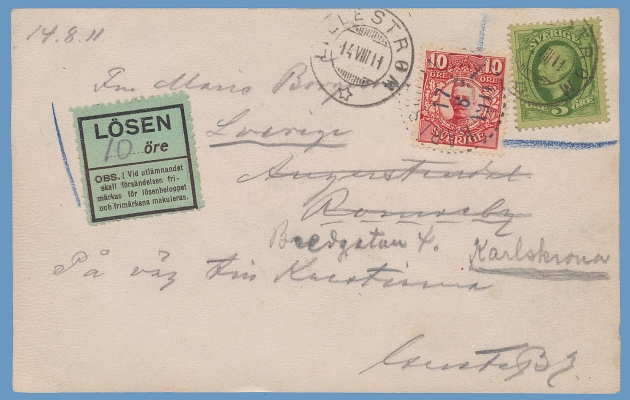 14.8.11
LILLESTRØM
14 VIII 11
10 10
ÖRE ÖRE
SVERIGE
SVERIGE
5 ÖRE
Fru Maria
Sverige
LÖSEN
10 öre
OBS.! Vid utlämnandet
skall försändelsen fri-
märkas för lösenbeloppet
och frimärkena makuleras.
Augustendal
Ronneby
Bredgatan 4.
Karlskrona
På väg till Kristiania